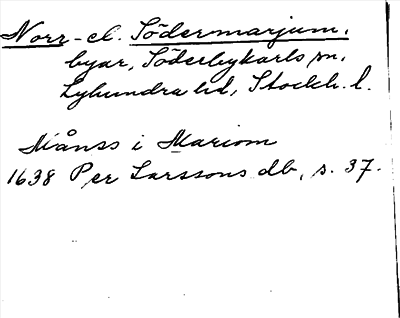 Norr- el. Södermarjum,
byar, Söderbykarls sn,
Lyhundra hd, Stockh. l.
Månss i Mariom
1638 Per Larssons db, s. 37.